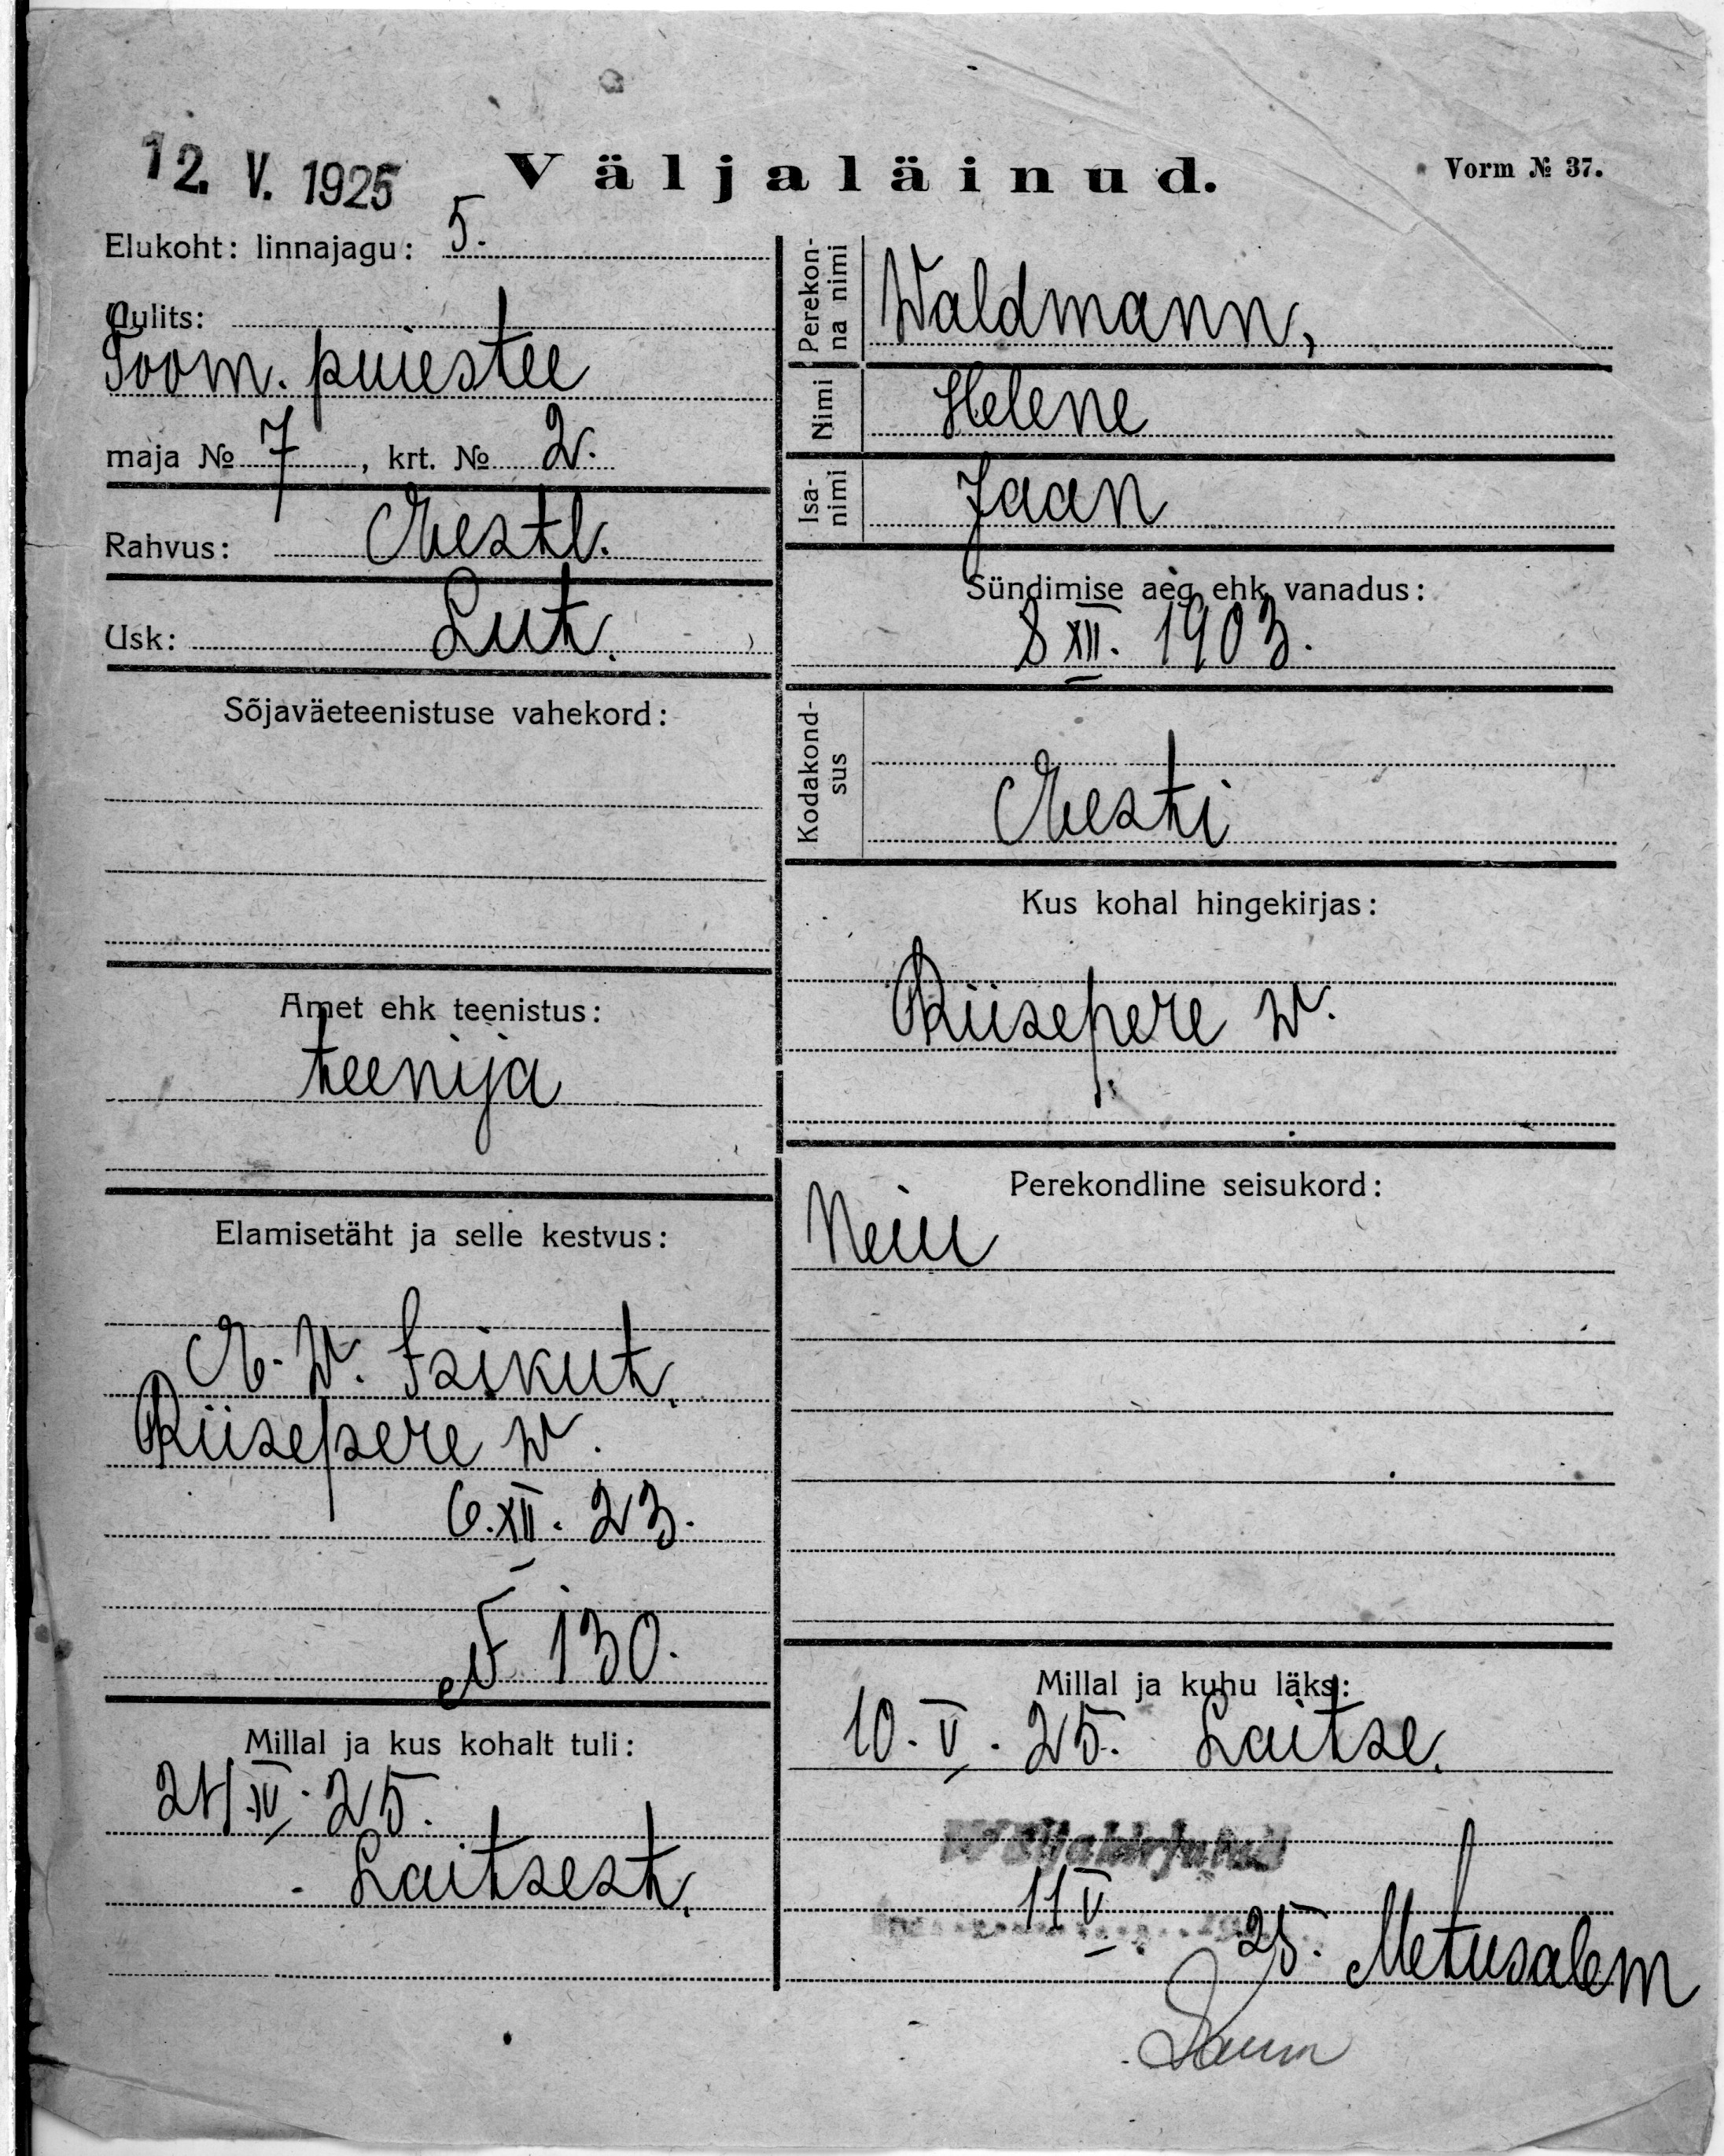 12. V. 1925
Väljaläinud.
Vorm № 37.
Elukoht: linnajagu: 5.
Uulits:
Toom. puiestee
maja № 7, krt. № 2.
Rahvus: Eestl.
Usk: Lut.
Sõjaväeteenistuse vahekord:
Amet ehk teenistus:
teenija
Elamisetäht ja selle kestvus:
E. W. Isikut.
Riisepere w.
6. XII. 23.
№ 130.
Millal ja kus kohalt tuli:
24 IV. 25.
Laitsest.
Perekonna nimi Waldmann,
Nimi Helene
Isanimi Jaan
Sündimise aeg ehk vanadus:
8 XII. 1903.
Kodakondsus
Eesti
Kus kohal hingekirjas:
Riisepere w.
Perekondline seisukord:
Neiu
Millal ja kuhu läks:
10. V. 25. Laitse.
Wäljakirjutud
11 V 25. Metusalem